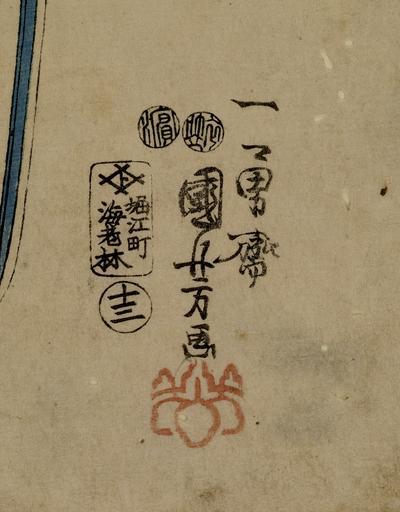 一勇齋
國芳画
濱
堀江町
海老林
十三